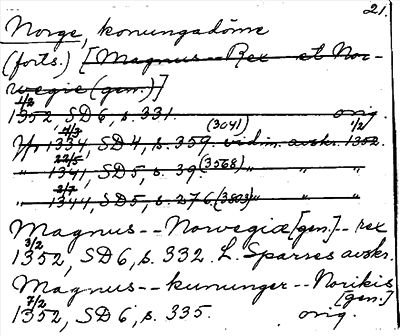 21.
Norge, konungadöme
(forts.) [Magnus -- Rex et Nor-
wegie (gen.)]
1/2
1352, SD6, s. 331. orig.
4/3 (3041) 1/2
1334, SD4, s. 359. vidim. avskr. 1352.
22/5
" 1341, SD5, s. 39. (3568) " " "
2/7
" 1344, SD5, s. 276. (3803) " " "
Magnus -- Norwegiæ [gen.] -- rex
3/2
1352, SD6, s. 332. L. Sparres avskr.
Magnus -- kununger -- Norikis
[gen.]
7/2
1352, SD6, s. 335. orig.